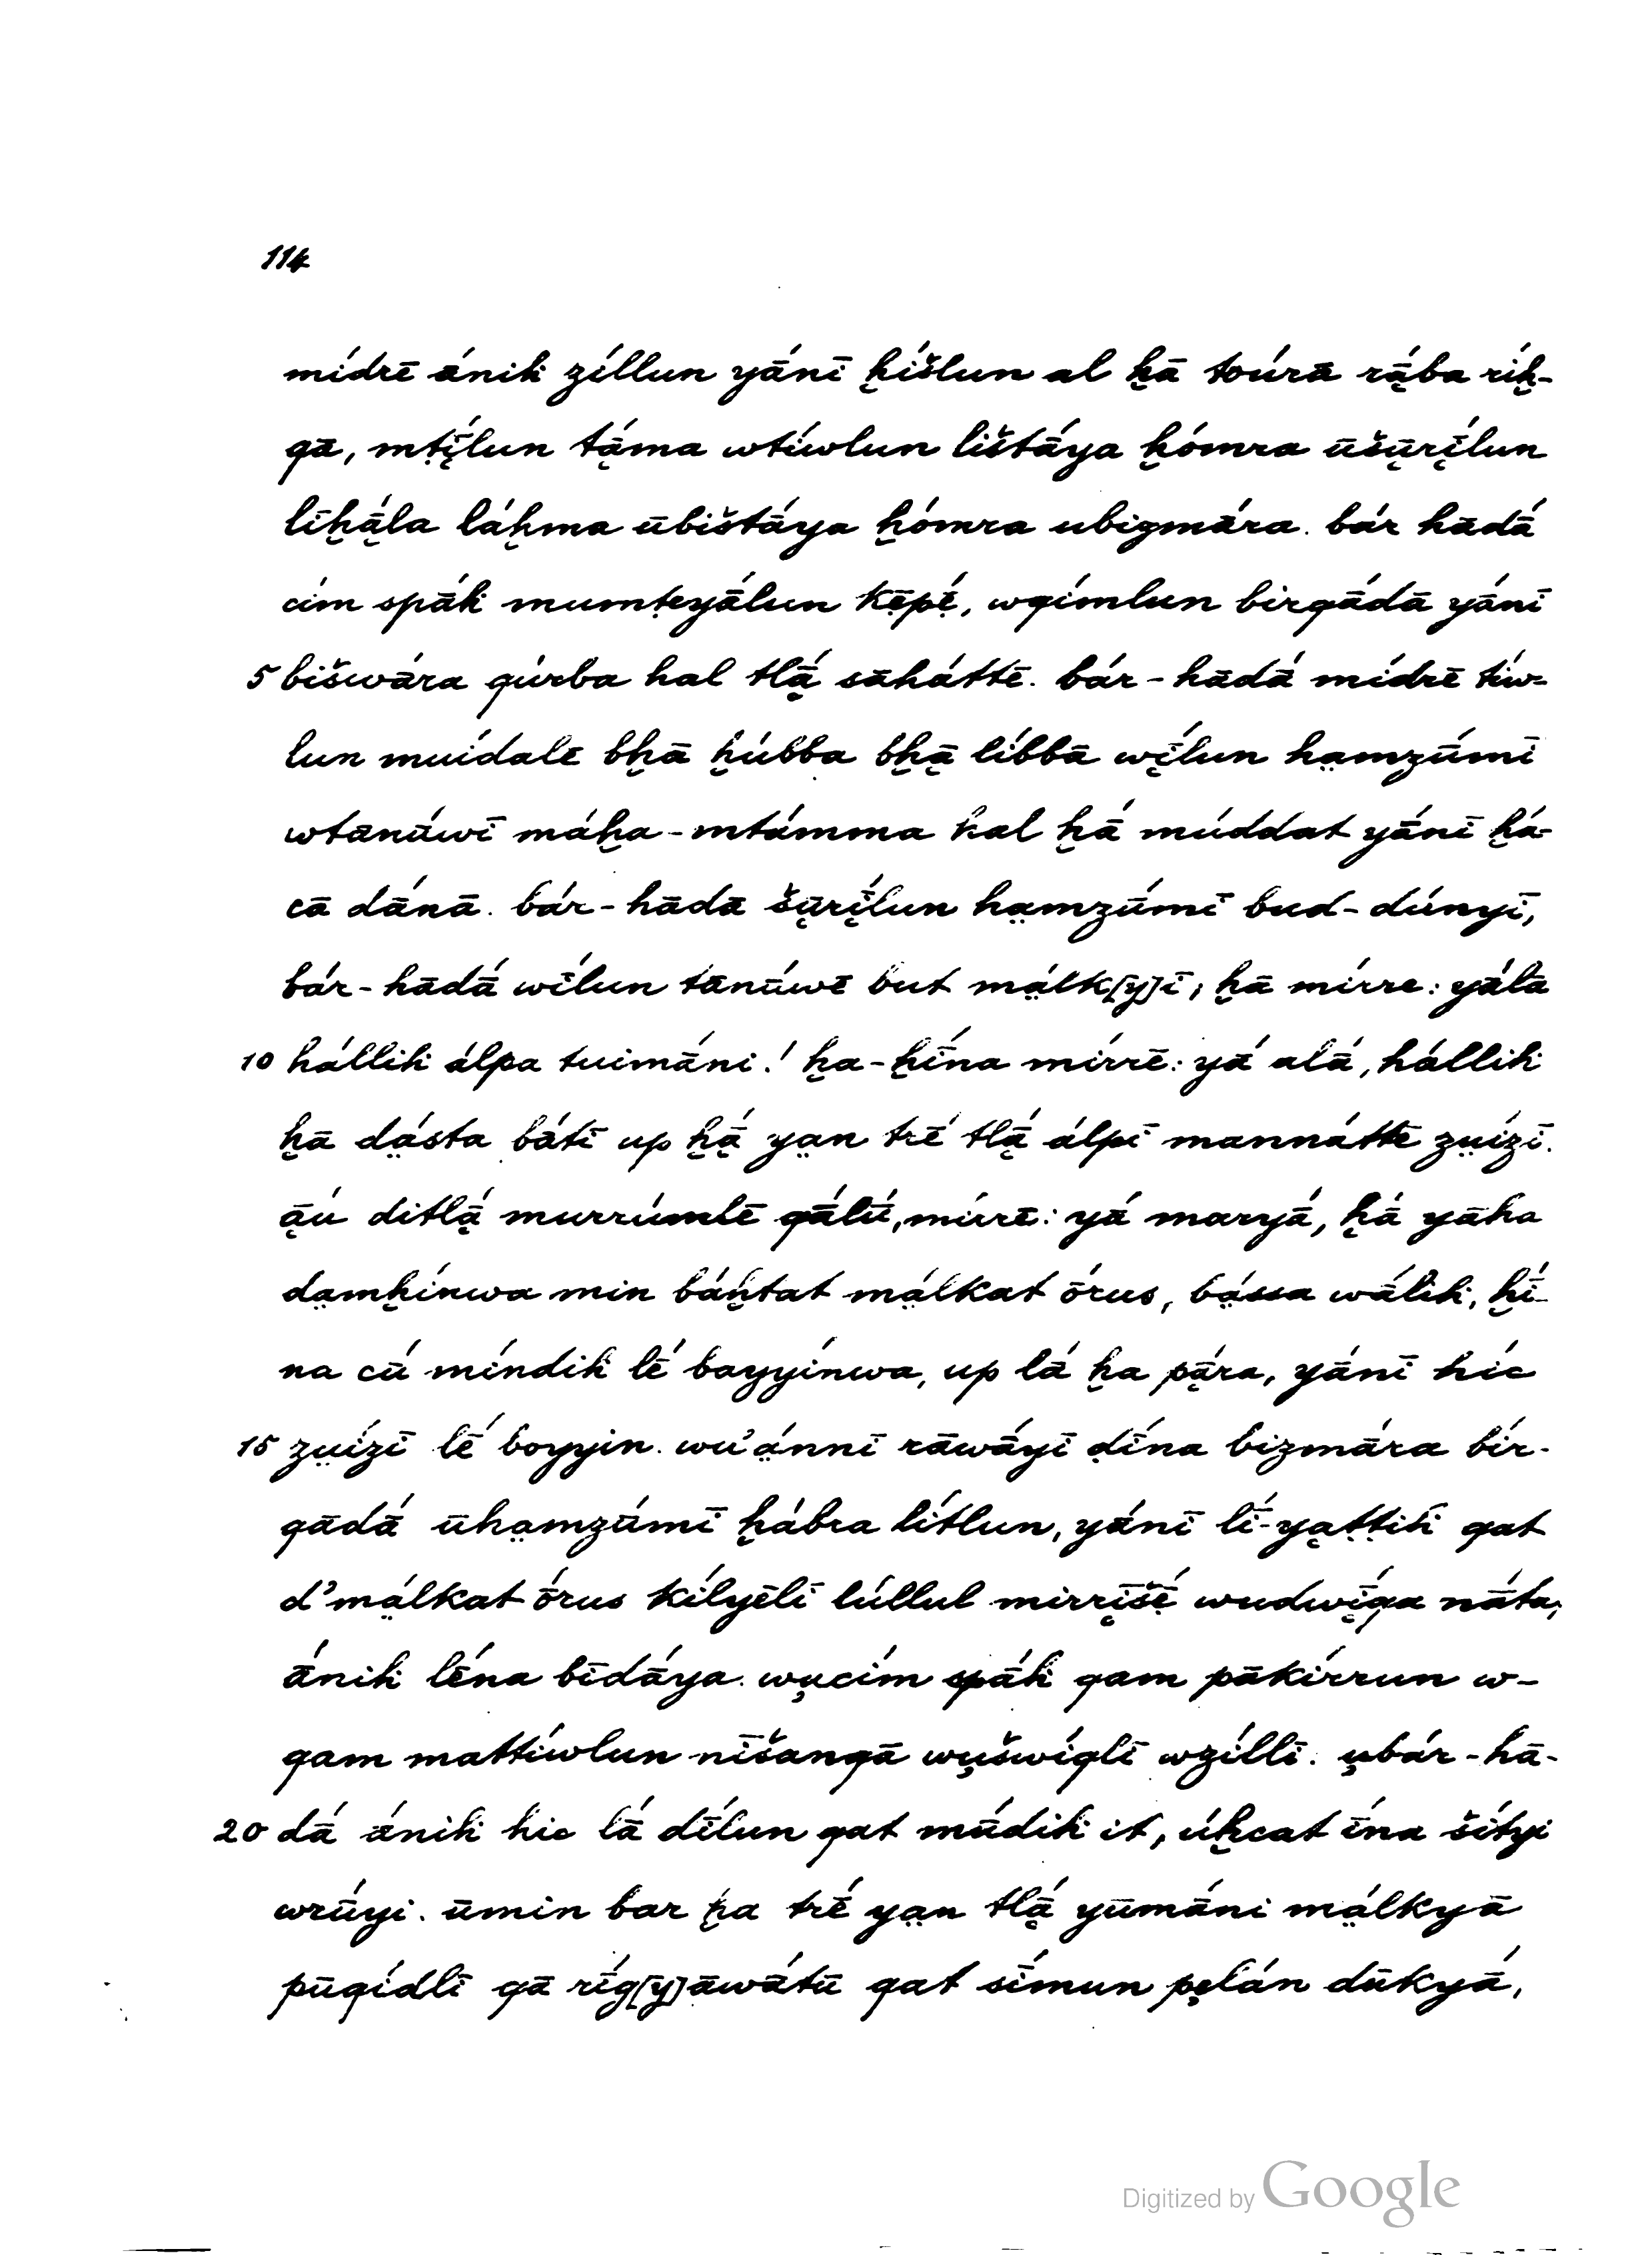 114
mídrē ā́nih zíllun yā́nī ḫíšlun al ḫā toúrā rā̤́ba ríḫ-
qā, mṭī̤́lun tā̤́ma wtíwlun lištā́ya ḫómra ūšṳ̄rī̤́lun
līḫā̤́la láḫma ūbištā́ya ḫómra ubizmā́ra. bár hādā́
cim spā́h mumṭeyā́lun kēpḗ, wqímlun birqā́dā yā́nī
5 bišwā́ra qúrba hal tlā̤́ sāháttē. bár-hādā́ mídrē tíw-
lun muídalē bḫā ḫúbba bḫā̤ líbbā wī̤́lun ha̤mzū́mī
wtānū́wī máḫa-mtámma hal ḫā́ múddat yā́nī ḫá-
cā dā́nā. bár-hādā šṳ̄rī̤́lun ha̤mzū́mī bud-dúnyī,
bár-hādā́ wī́lun tānū́wē but má̤lk[y]ī; ḫā mírre: yā́lā
10 hállih álpa tuimā́ni! ḫa-ḫī́na mírrē: yā́ alā́, hállih
ḫā dá̤sta bā́tī up ḫā̤́ ya̤n trḗ tlā̤́ álpī mannáttē zṳízī.
ā̤ú ditlā̤́ murrúmlē qā́lū, mírrē: yā́ maryā́, ḫā́ yāha
da̤mḫínwa min báḫtat má̤lkat ṓrus, bá̤ssa wā́lih, ḫī́-
na cū́ míndih lḗ bayyínwa, up lā́ ḫa pā̤́ra, yā́nī híc
15 zṳízī lḗ boyyin. wu'á̤nnī rāwā́yī dī́na bizmā́ra bír-
qādā́ ūha̤mzū́mī ḫábra lítlun, yā́nī lī́-ya̤ṭṭih qat
d'má̤lkat ṓrus kílyēlī lúllul mirrī̤šḗ wudwī̤́qa nā́ta,
ā́nih lḗna bīdā́ya. wṳcím spā́h qam pākírrun w-
qam mattíwlun nīšanqā wṳšwíqlī wzíllī. ṳbár-hā-
20 dā́ ā́nih hic lā́ dī́lun qat mū́dih it, úḫcat ī́na šítyi
wrū́yi. ūmin bar ḫa trḗ ya̤n tlā̤́ yūmā́ni má̤lkyā
pūqídlī qā rī́g[y]āwā́tū qat sī́mun pe̤lán dūkyā́,
Digitized by Google